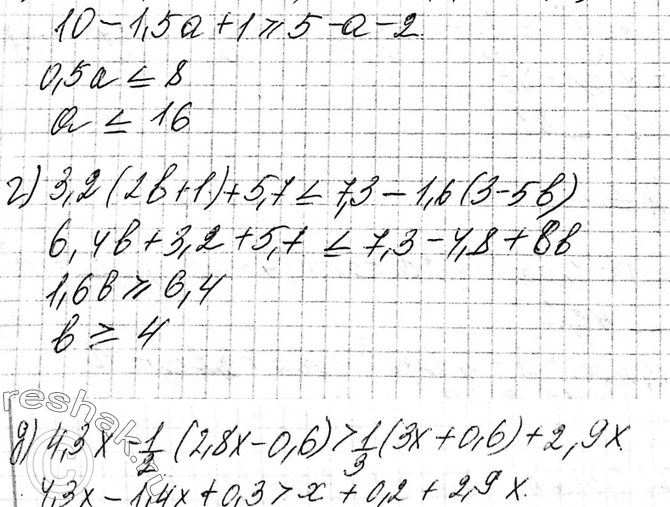 10 - 1,5a + 1 ≥ 5 - a - 2
0,5a ≤ 8
a ≤ 16
г) 3,2(2b+1)+5,7 ≤ 7,3 - 1,6(3-5b)
6,4b + 3,2 + 5,7 ≤ 7,3 - 4,8 + 8b
1,6b ≥ 6,4
b ≥ 4
reshak.ru
д) 4,3x - 1/2 (2,8x - 0,6) > 1/3 (3x + 0,6) + 2,9x
4,3x - 1,4x + 0,3 > x + 0,2 + 2,9x